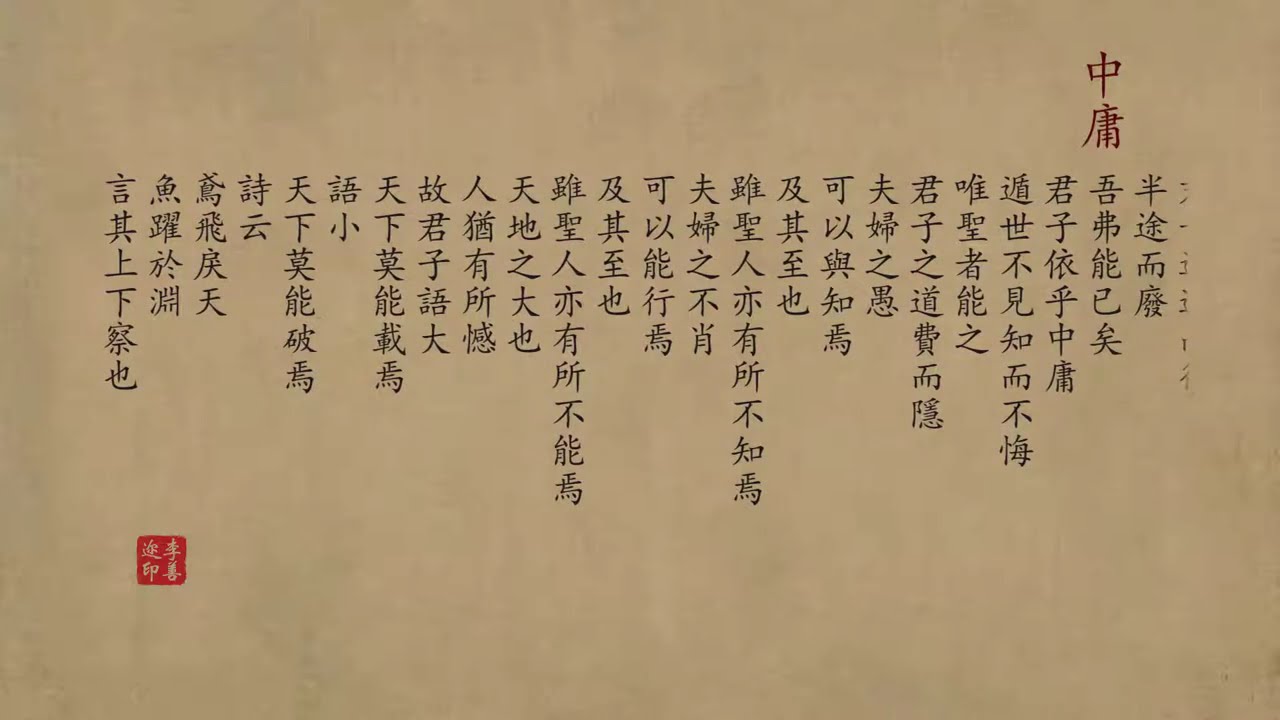 中庸
半途而廢
吾弗能已矣
君子依乎中庸
遁世不見知而不悔
唯聖者能之
君子之道費而隱
夫婦之愚
可以與知焉
及其至也
雖聖人亦有所不知焉
夫婦之不肖
可以能行焉
及其至也
雖聖人亦有所不能焉
天地之大也
人猶有所憾
故君子語大
天下莫能載焉
語小
天下莫能破焉
詩云
鳶飛戾天
魚躍於淵
言其上下察也
李善
迩印